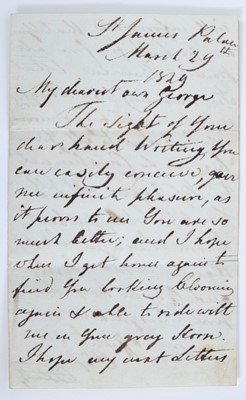 St James Palace
March 29th
1829
My dearest own George
The sight of your
dear hand Writing, You
can easily conceive, gave
me infinite pleasure, as
it proves to me You are so
much better; and I hope
when I get home again to
find You looking blooming
again & able to ride with
me on Your grey Horse.
I hope my next Letters